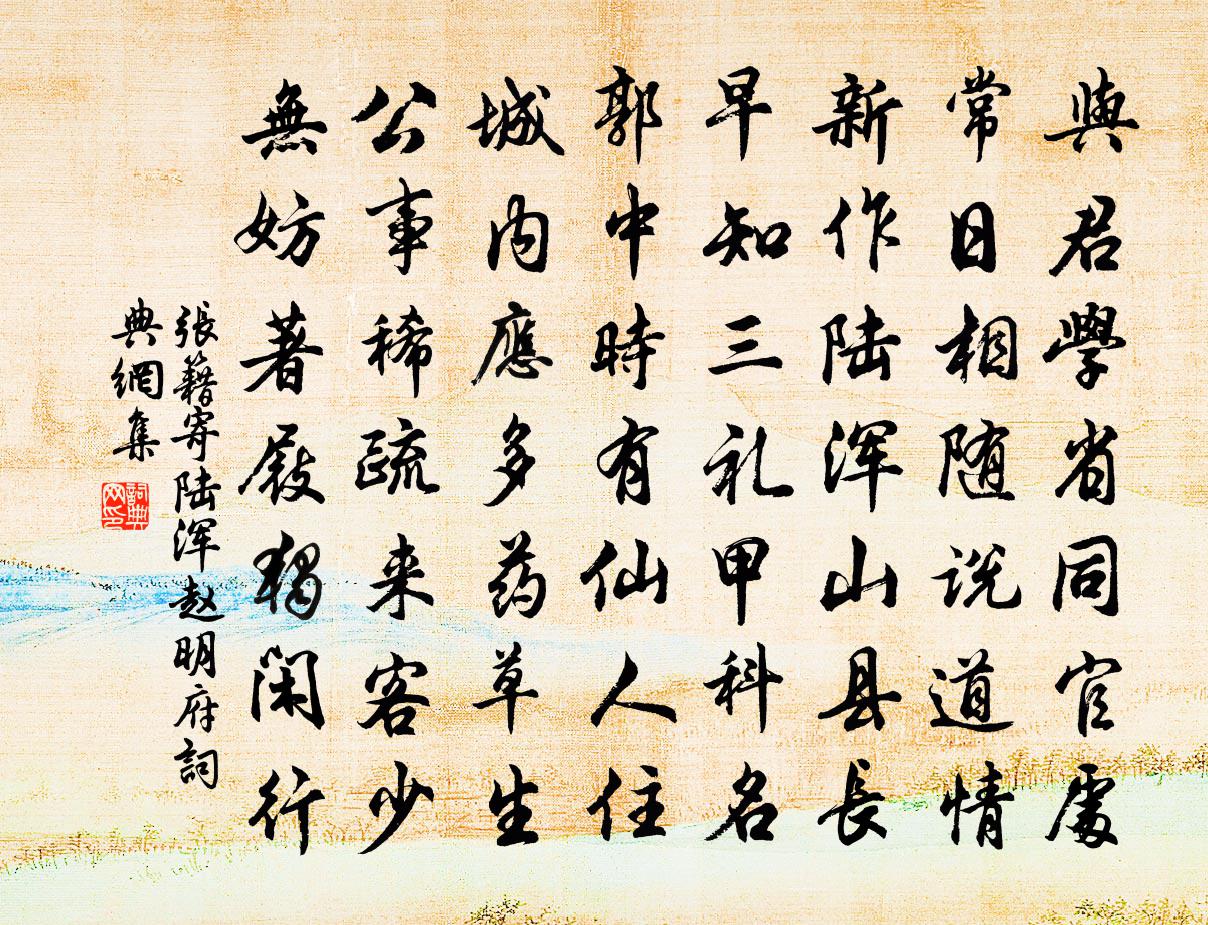 與君學省同官處
常日相随说道情
新作陆浑山县長
早知三礼甲科名
郭中時有仙人住
城内應多药草生
公事稀疏来客少
無妨著屐獨闲行
張籍寄陆浑赵明府詞
典網集
詞典网印